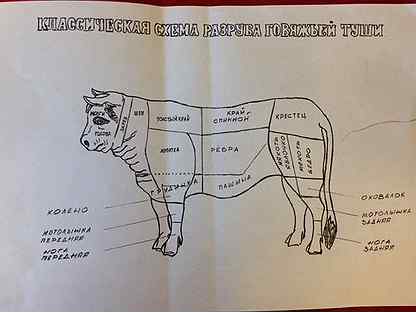 КЛАССИЧЕСКАЯ СХЕМА РАЗРУБА ГОВЯЖЬЕЙ ТУШИ
МОЗГИ
ГОЛОВА
ЗАРЕЗ
ШЕЯ
ТОЛСТЫЙ КРАЙ
КРАЙ
СПИННОЙ
КРЕСТЕЦ
ЛОПАТКА
РЁБРА
МЯКОТЬ
ЯБЛОЧКО
МЯКОТЬ
БЕДРО
ГРУДИНКА
ПАШИНА
КОЛЕНО
МОТОЛЫЖКА
ПЕРЕДНЯЯ
НОГА
ПЕРЕДНЯЯ
ОКОВАЛОК
МОТОЛЫЖКА
ЗАДНЯЯ
НОГА
ЗАДНЯЯ